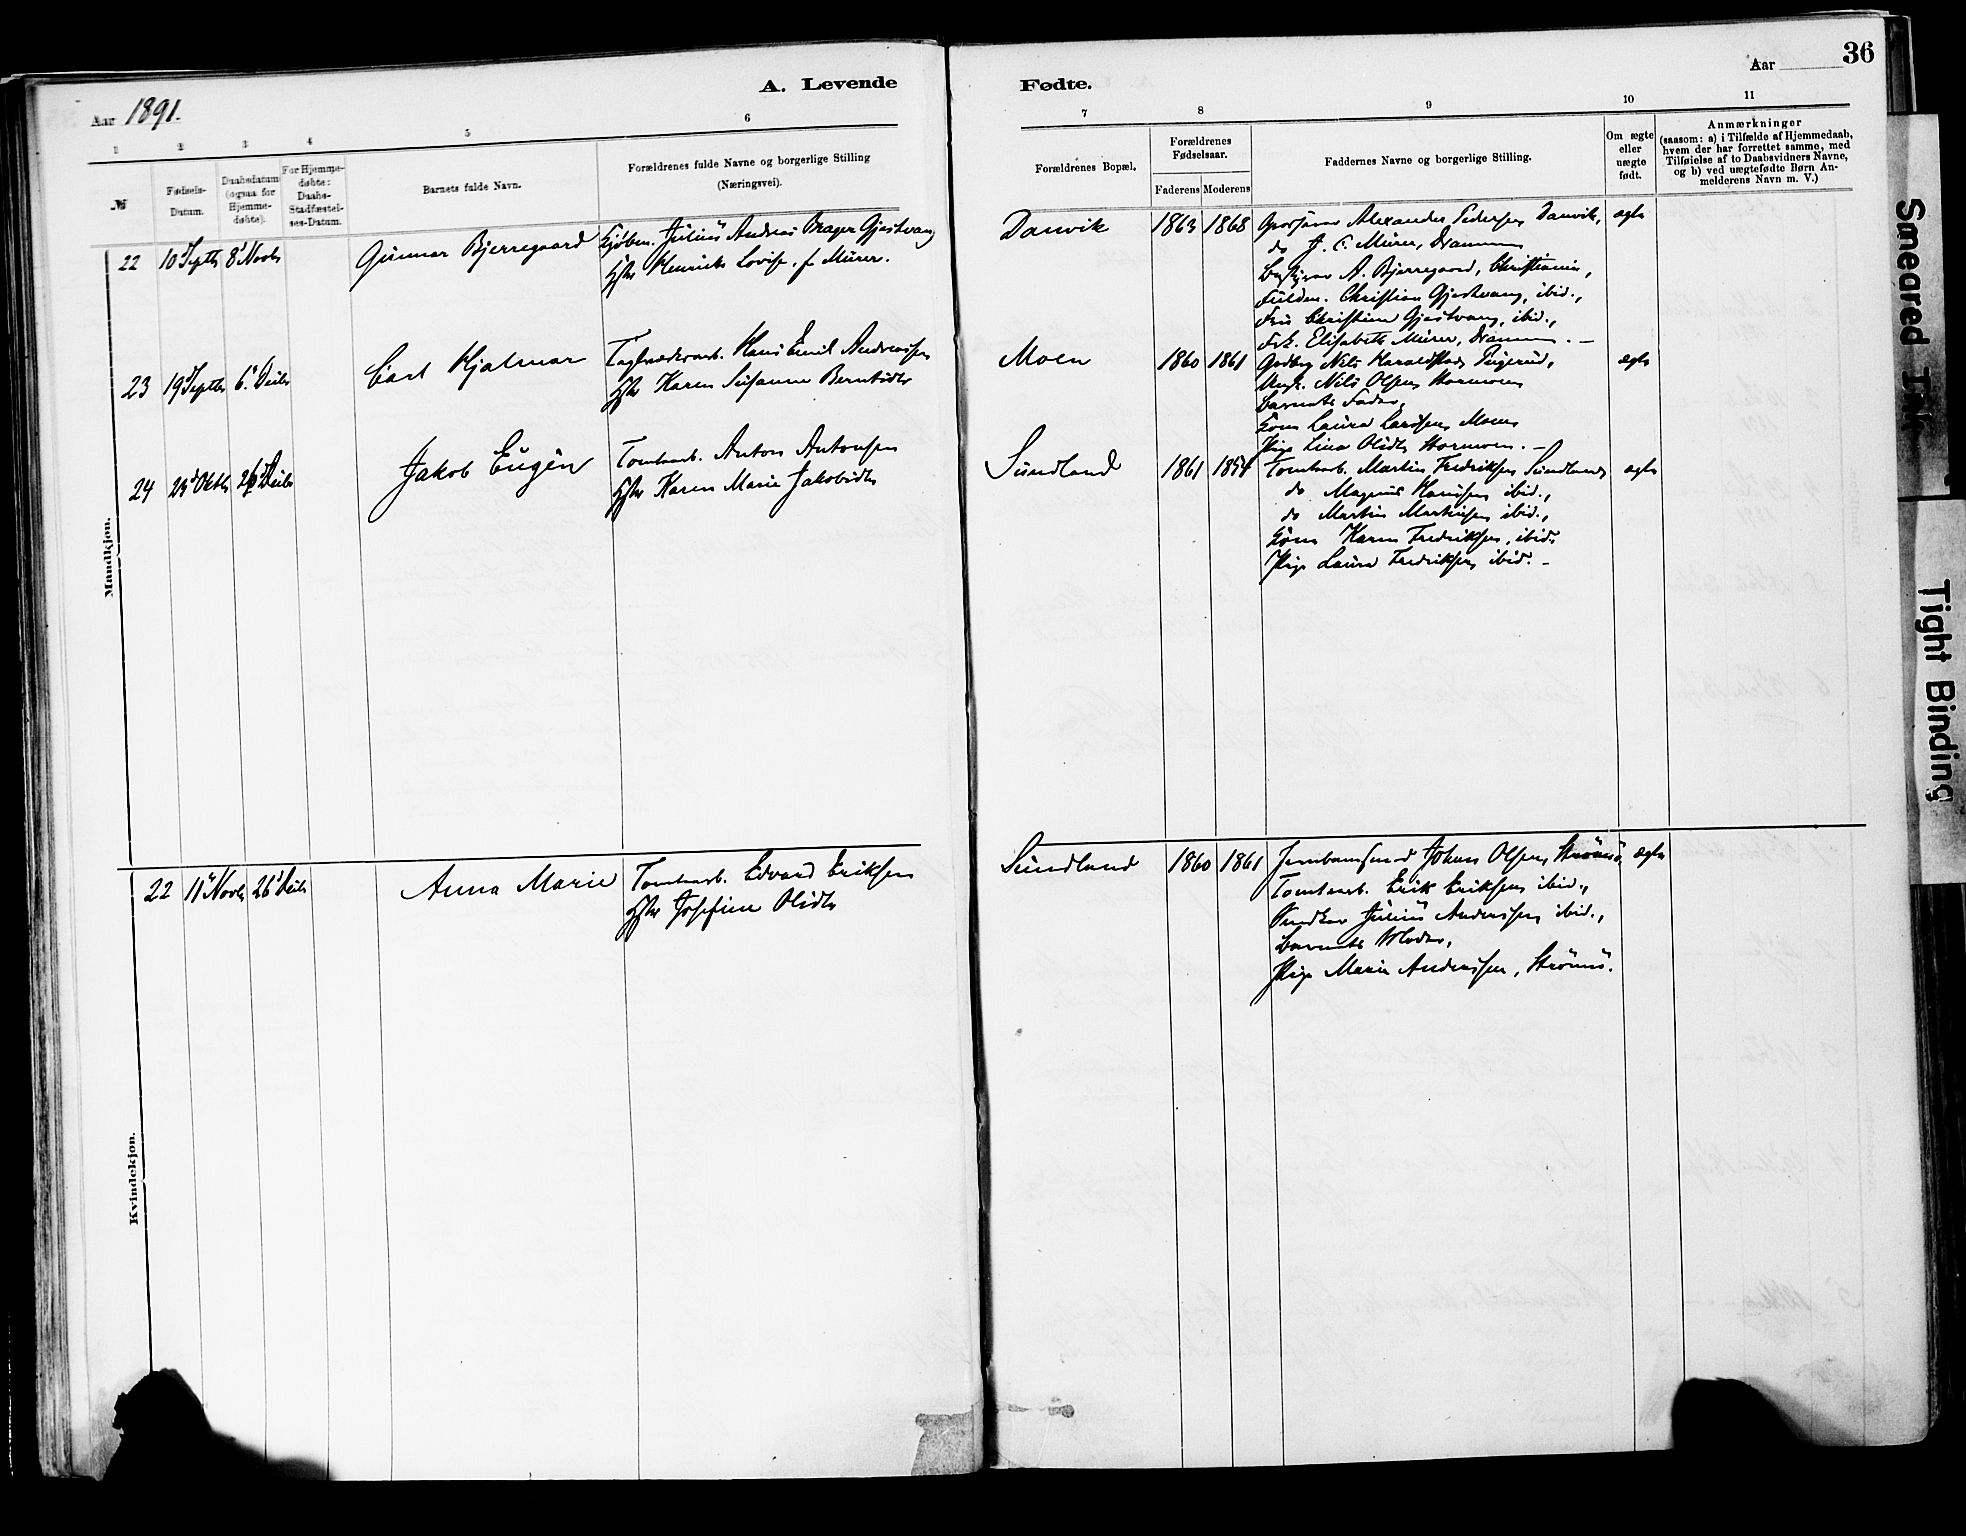 36
Aar
A. Levende
Fødte.
Aar 1891.
1 2 3 4 5 6
7 8 9 10 11
№
Fødsels-
Datum.
Daabsdatum
(ogsaa for
Hjemme-
døbte).
For Hjemme-
døbte:
Daabs-
Stadfæstel-
ses-Datum.
Barnets fulde Navn.
Forældrenes fulde Navne og borgerlige Stilling
(Næringsvei).
Forældrenes Bopæl.
Forældrenes
Fødselsaar.
Faderens Moderens
Faddernes Navne og borgerlige Stilling.
Om ægte
eller
uægte
født.
Anmærkninger
(saasom: a) i Tilfælde af Hjemmedaab,
hvem der har forrettet samme, med
Tilføielse af to Daabsvidners Navne,
og b) ved uægtefødte Børn An-
melderens Navn m. V.)
Mandkjøn.
22 10 Septbr 8' Novbr Gunnar Bjerregaard
Kjøbm. Julius Andreas Brager Gjestvang
Hstr Henriette Lovise f. Mürer.
Danvik 1863 1868
Alexander Pedersen Danvik,
do J. C. Mürer, Drammen
Bestyrer A. Bjerregaard, Christiania,
Fuldm. Christian Gjestvang, ibid.,
Fru Christiane Gjestvang, ibid.,
Frk. Elisabeth Mürer, Drammen. –
ægte
23 19 Septbr 6' Decbr Carl Hjalmar
Hans Emil Andreassen
Hstr Karen Susanne Berntsdtr
Moen 1860 1861
Nils Haraldstad,
Ungk. Nils Olsen Stormoen
Barnets Fader,
Kone Laura Larssen Moen
Pige Lina Olsdtr Stormoen. –
ægte
24 23' Oktbr 26' Decbr Jakob Eugén
Tomtearb. Anton Antonsen
Hstr Karen Marie Jakobsdtr
Sundland 1861 1854
Tomtearb. Martin Fredriksen Sundland,
do Magnus Hansen ibid.,
do Martin Martinsen ibid.,
Kone Karen Fredriksen, ibid.
Pige Laura Fredriksen ibid. –
ægte
Kvindekjøn.
22 11' Novbr 26' Decbr Anna Marie
Tomtearb. Edvard Eriksen
Hstr Josefine Olsdtr
Sundland 1860 1861
Jernbanesmed Johan Olsen, Strømsø,
Tomtearb. Erik Eriksen, ibid.,
Snedker Julius Anderssen ibid.,
Barnets Moder,
Pige Marie Anderssen, Strømsø.
ægte
Smeared Ink
Tight Binding